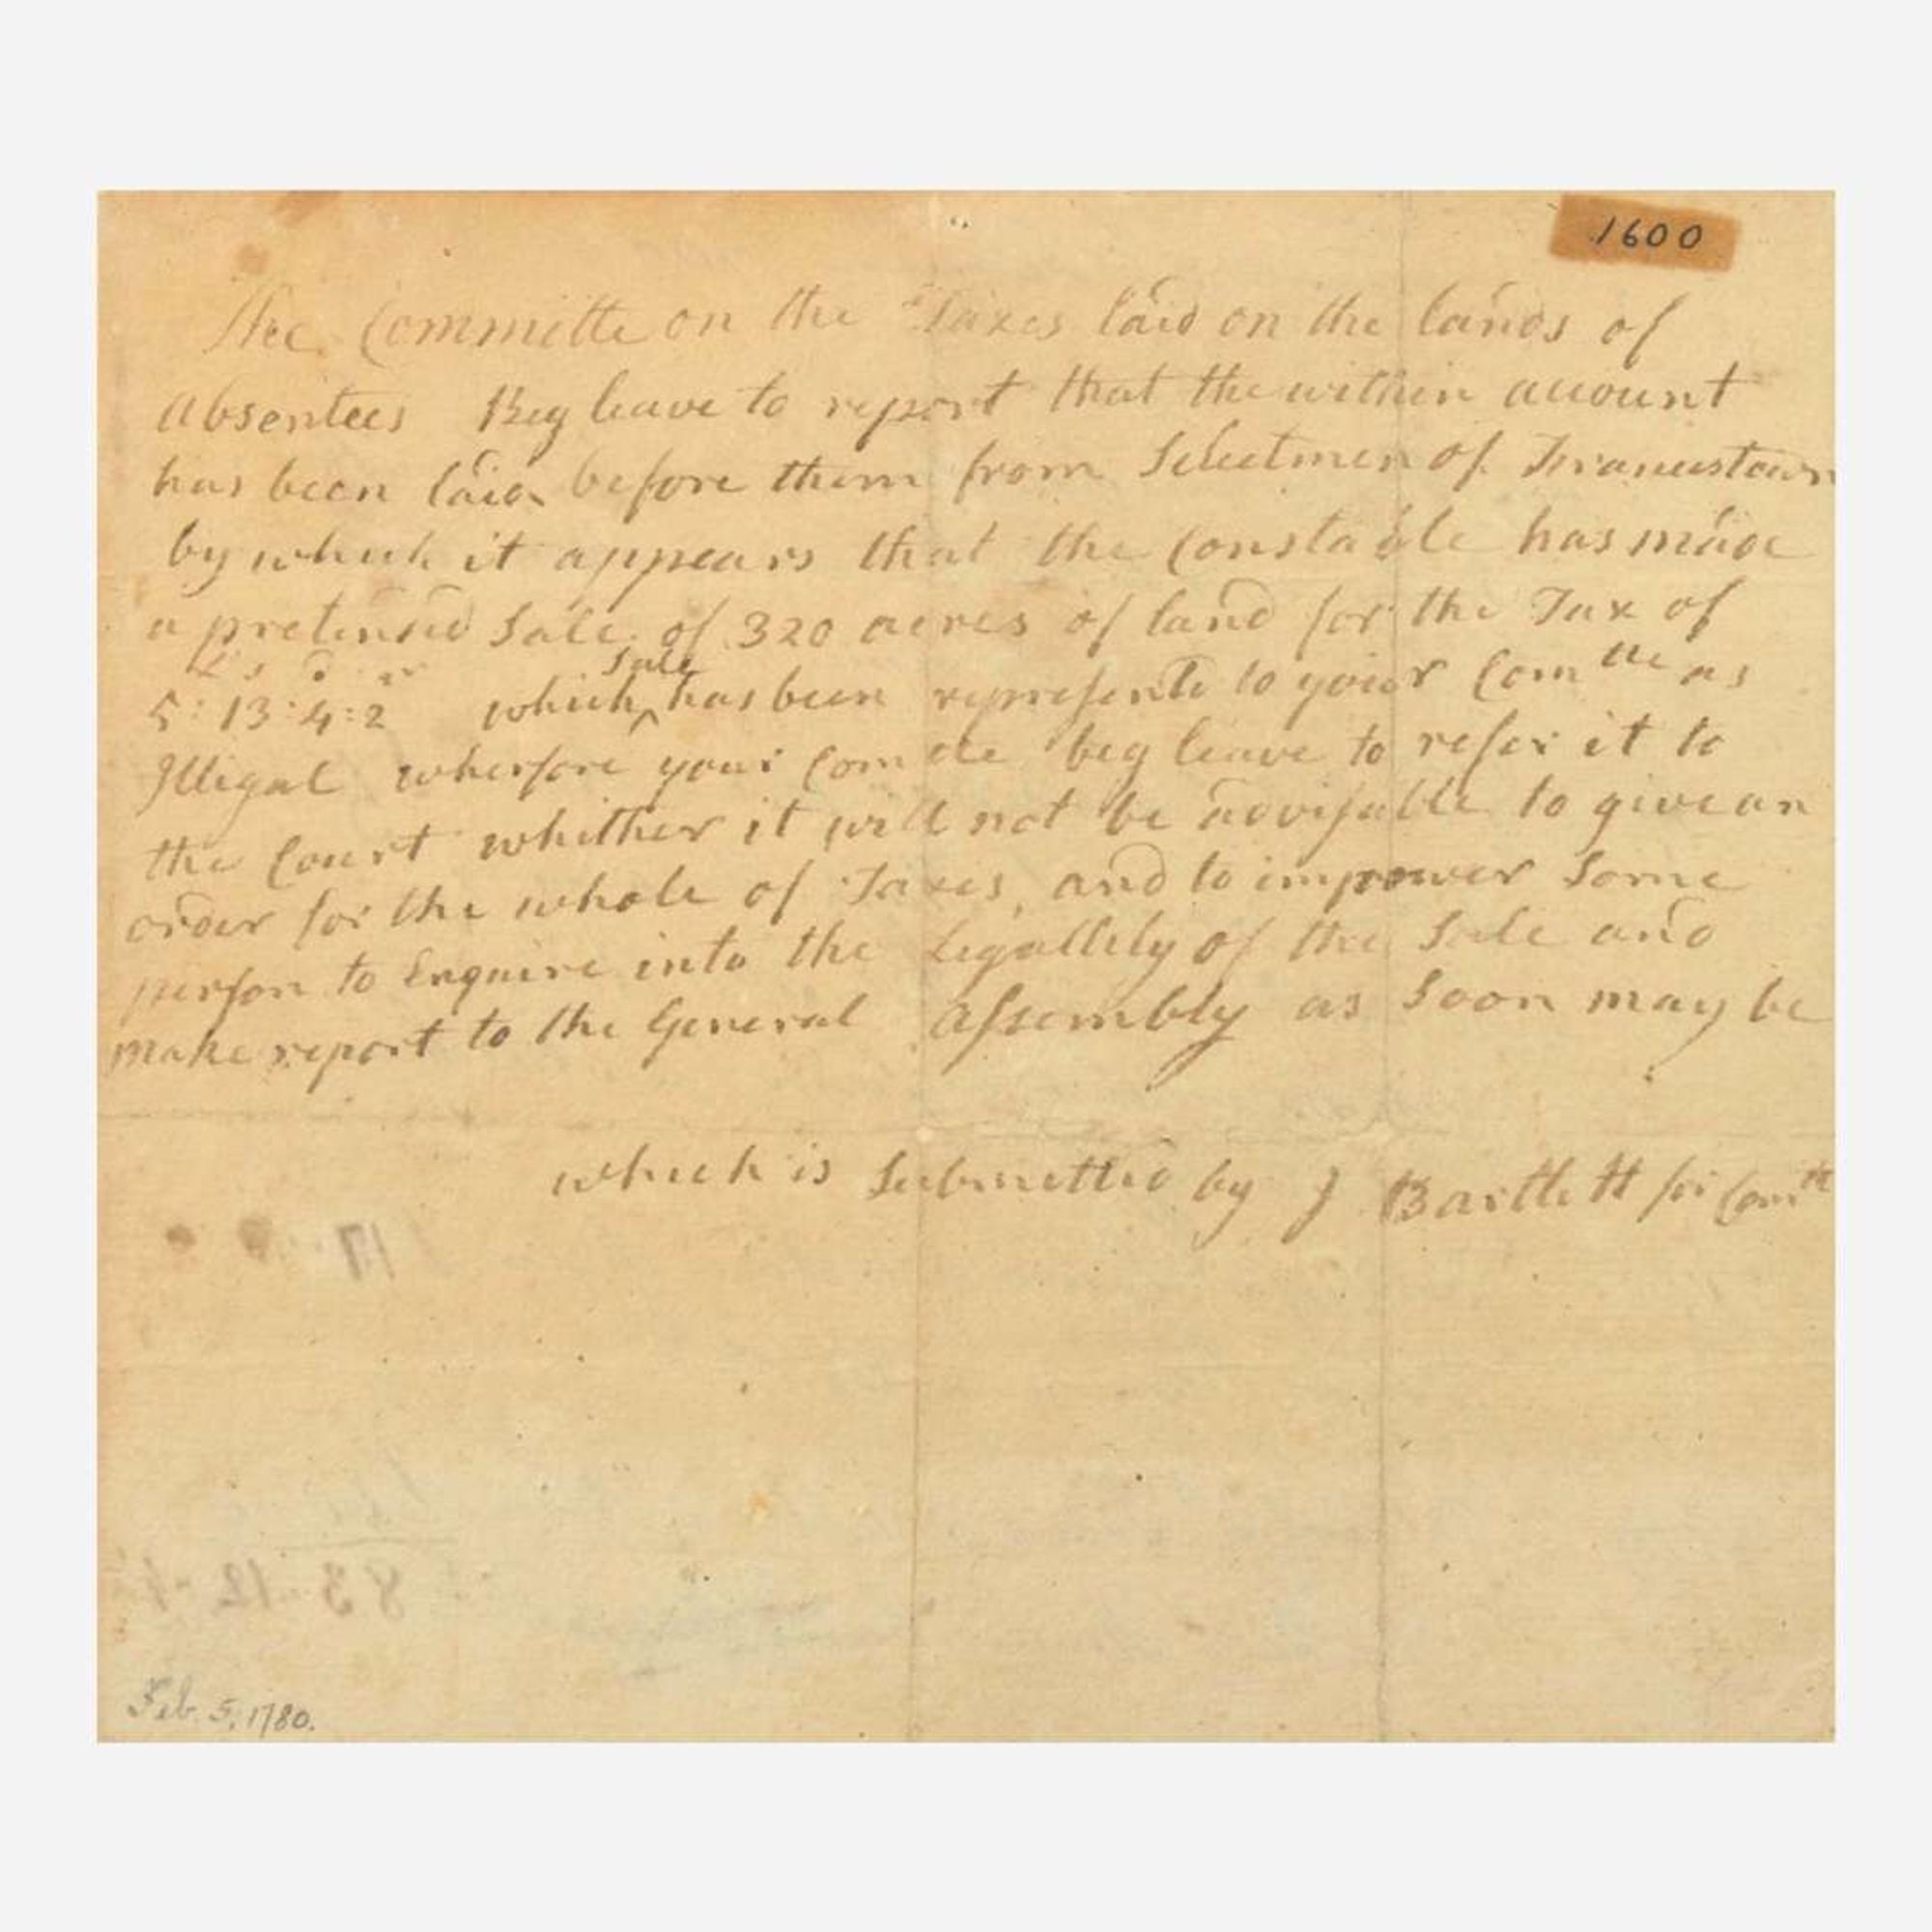 1600
The Committe on the Taxes laid on the lands of
absentees Beg leave to report that the within account
has been laid before them from Selectmen of Francestown
by which it appears that the Constable has made
a pretended Sale of 320 acres of land for the Tax of
£ s d
5:13:4:2 which ^sale has been represente to your Comtte as
Illigal wherfore your Comtte beg leave to refer it to
the Court whither it will not be advisable to give an
order for the whole of Taxes, and to impower Some
person to Enquire into the Legallity of the Sale and
make report to the General Assembly as Soon may be
which is Submitted by J Bartlett for Comtt
17
83-12-4
Feb. 5, 1780.